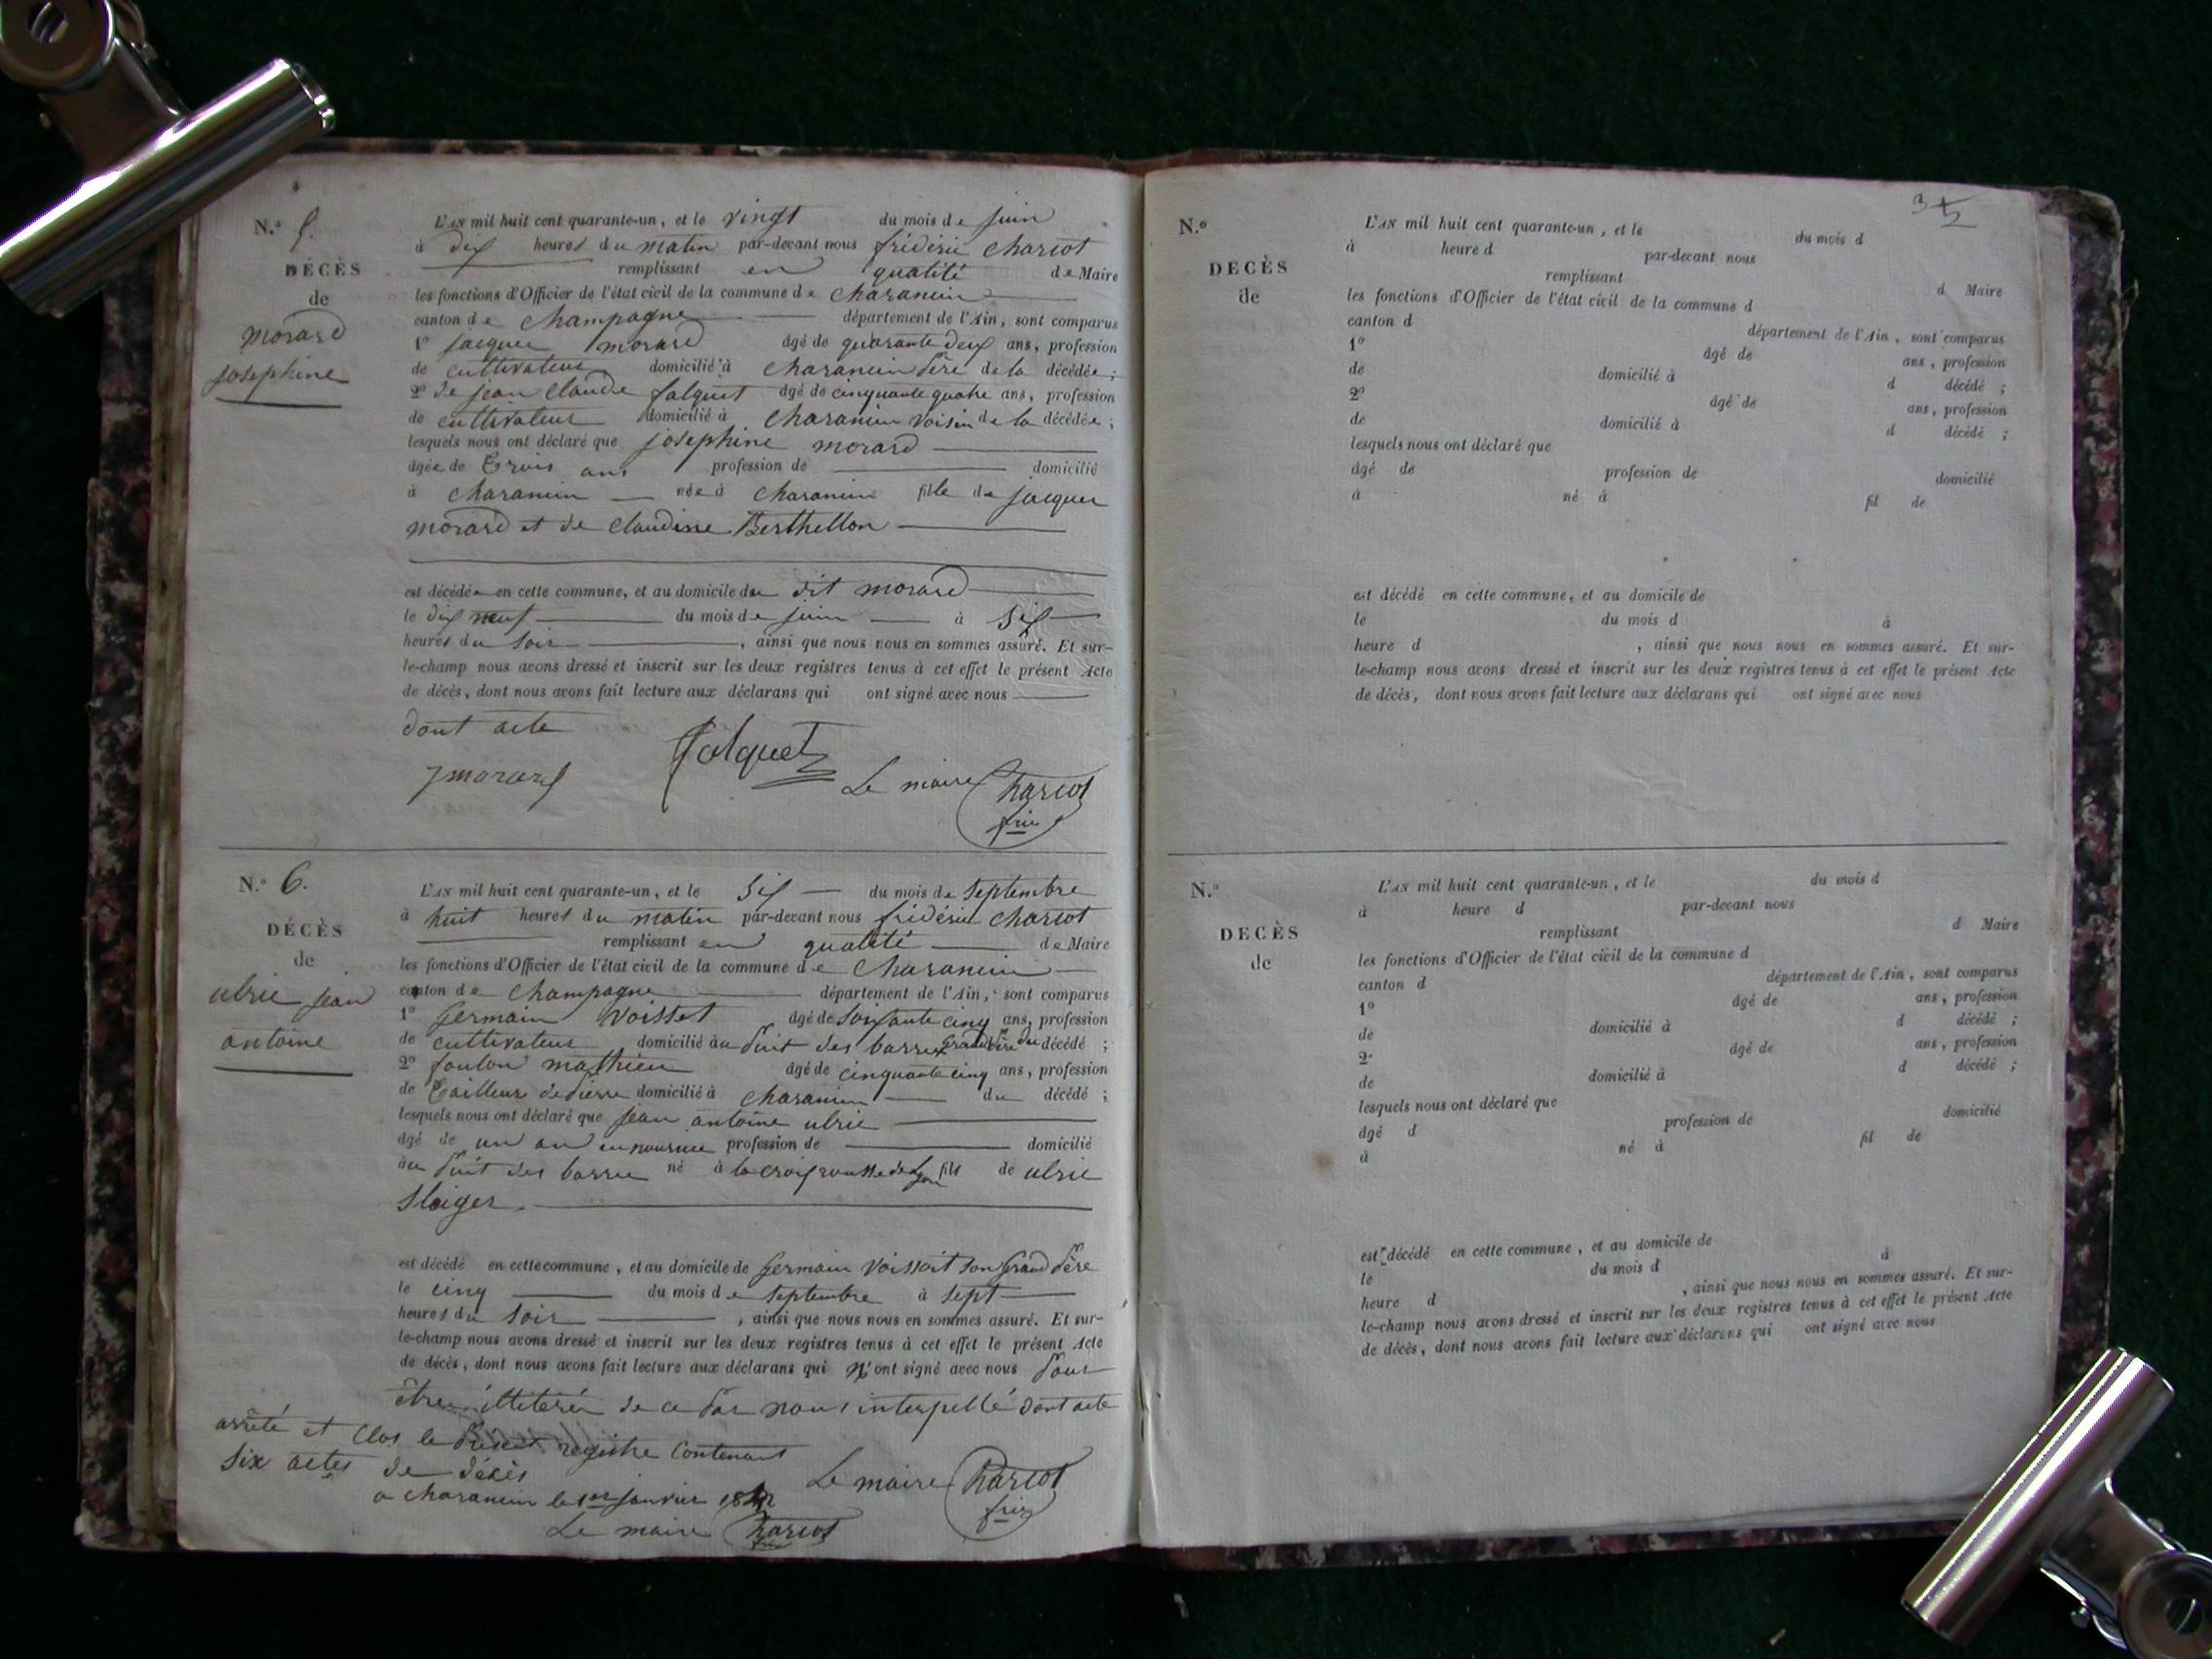 N.º 5.
DÉCÈS
de
morard
josephine
L'AN mil huit cent quarante-un, et le vingt du mois de juin
à dix heures du matin par-devant nous frédéric Charcot
remplissant en qualité de Maire
les fonctions d'Officier de l'état civil de la commune de Charancin
canton de Champagne département de l'Ain, sont comparus
1º jacques morard âgé de quarante deux ans, profession
de cultivateur domicilié à Charancin père de la décédée ;
2º de jean Claude falquet âgé de cinquante quatre ans, profession
de cultivateur domicilié à Charancin voisin de la décédée ;
lesquels nous ont déclaré que josephine morard
âgée de trois ans profession de domicilié
à Charancin née à Charancin fille de jacques
morard et de Claudine Berthellon
est décédée en cette commune, et au domicile du dit morard
le dix neuf du mois de juin à six
heures du soir , ainsi que nous nous en sommes assuré. Et sur-
le-champ nous avons dressé et inscrit sur les deux registres tenus à cet effet le présent Acte
de décès, dont nous avons fait lecture aux déclarans qui ont signé avec nous
dont acte
jmorard falquet
Le maire Charcot
fric
N.º 6.
DÉCÈS
de
ulric jean
antoine
L'AN mil huit cent quarante-un, et le six du mois de septembre
à huit heures du matin par-devant nous frédéric Charcot
remplissant en qualité de Maire
les fonctions d'Officier de l'état civil de la commune de Charancin
canton de Champagne département de l'Ain, sont comparus
1º germain Voisset âgé de soixante cinq ans, profession
de cultivateur domicilié au puit des barres grand père du décédé ;
2º foulon mathieu âgé de cinquante cinq ans, profession
de tailleur de pierre domicilié à Charancin du décédé ;
lesquels nous ont déclaré que jean antoine ulric
âgé de un an en nourrice profession de domicilié
au puit des barres né à la croix rousse de lyon fils de ulric
Slaiger
est décédé en cette commune, et au domicile de germain Voissait son grand père
le cinq du mois de septembre à sept
heures du soir , ainsi que nous nous en sommes assuré. Et sur-
le-champ nous avons dressé et inscrit sur les deux registres tenus à cet effet le présent Acte
de décès, dont nous avons fait lecture aux déclarans qui n'ont signé avec nous pour
être illitérés de ce par nous interpellé dont acte
arrêté et clos le présent registre contenant
six actes de décès
a charancin le 1er janvier 1842
Le maire Charcot
fric
Le maire Charcot
N.º
DECÈS
de
L'AN mil huit cent quarante-un, et le du mois d
à heure d par-devant nous
remplissant d Maire
les fonctions d'Officier de l'état civil de la commune d
canton d département de l'Ain, sont comparus
1º âgé de ans, profession
de domicilié à d décédé ;
2º âgé de ans, profession
de domicilié à d décédé ;
lesquels nous ont déclaré que
âgé de profession de domicilié
à né à fil de
est décédé en cette commune, et au domicile de
le du mois d à
heure d , ainsi que nous nous en sommes assuré. Et sur-
le-champ nous avons dressé et inscrit sur les deux registres tenus à cet effet le présent Acte
de décès, dont nous avons fait lecture aux déclarans qui ont signé avec nous
N.º
DECÈS
de
L'AN mil huit cent quarante-un, et le du mois d
à heure d par-devant nous
remplissant d Maire
les fonctions d'Officier de l'état civil de la commune d
canton d département de l'Ain, sont comparus
1º âgé de ans, profession
de domicilié à d décédé ;
2º âgé de ans, profession
de domicilié à d décédé ;
lesquels nous ont déclaré que
âgé d profession de domicilié
à né à fil de
est décédé en cette commune, et au domicile de
le du mois d à
heure d , ainsi que nous nous en sommes assuré. Et sur-
le-champ nous avons dressé et inscrit sur les deux registres tenus à cet effet le présent Acte
de décès, dont nous avons fait lecture aux déclarans qui ont signé avec nous